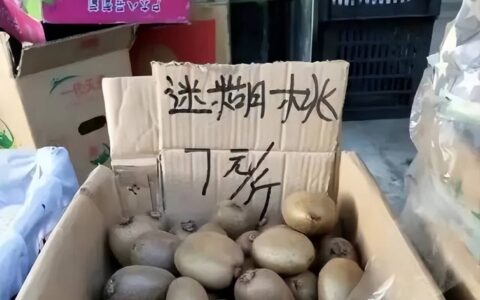 迷糊桃
7元/斤